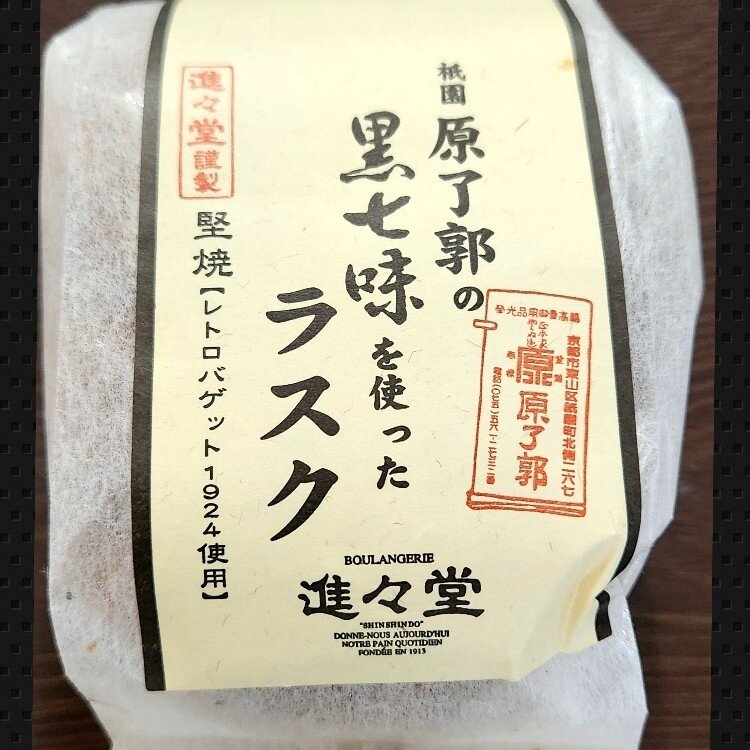 祇園
原了郭の
黒七味を使った
ラスク
進々堂謹製
堅焼【レトロバゲット1924使用】
京都市東山区祇園町北側二六七
原了郭
BOULANGERIE
進々堂
"SHINSHINDO"
DONNE-NOUS AUJOURD'HUI
NOTRE PAIN QUOTIDIEN
FONDÉE EN 1913